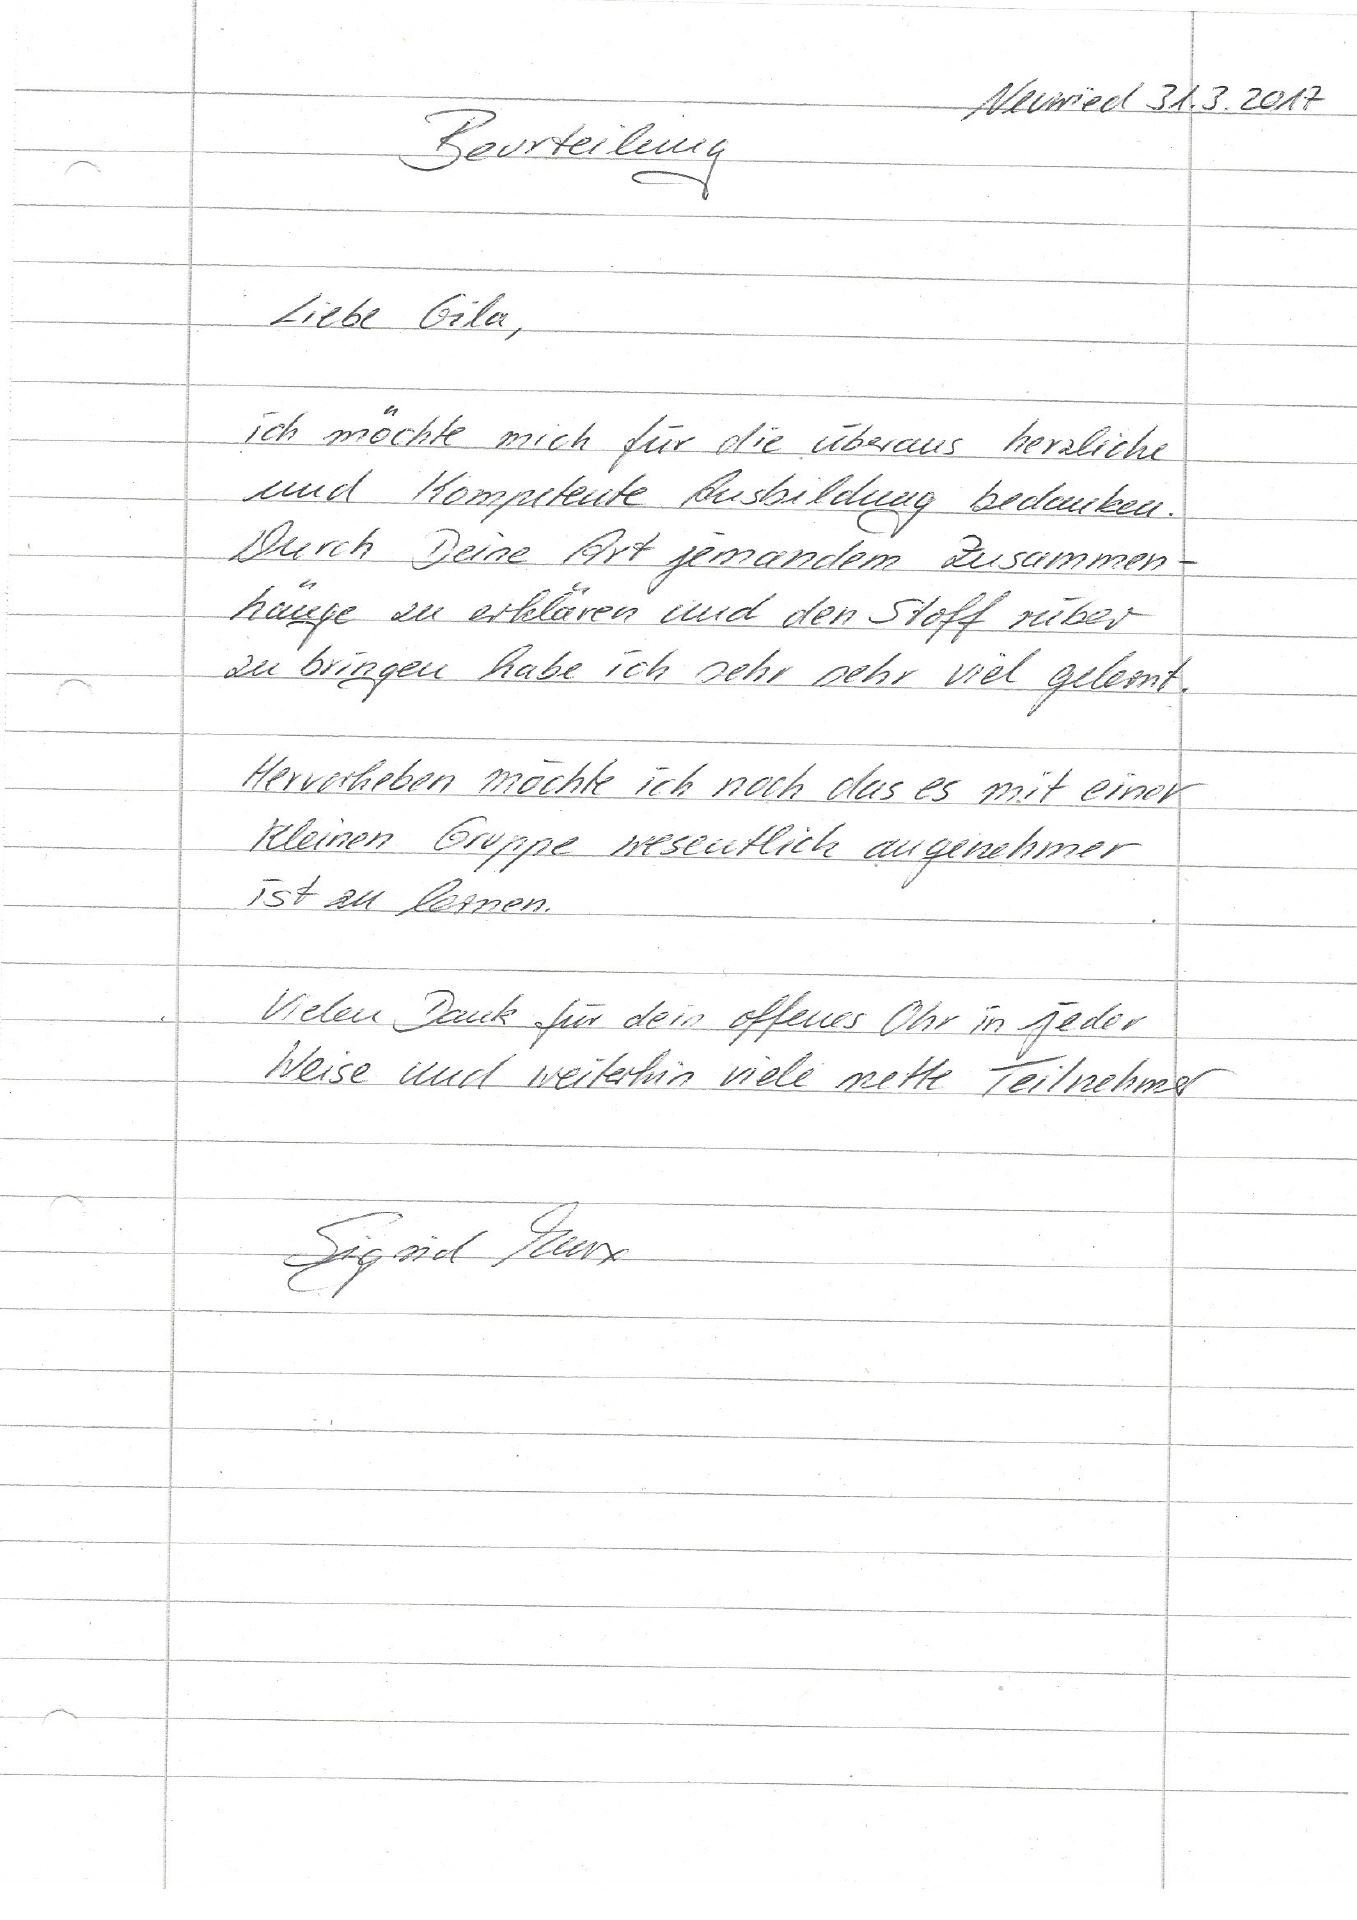 Neuried 31.3.2017
Beurteilung
Liebe Gila,
ich möchte mich für die überaus herzliche
und Kompetente Ausbildung bedanken.
Durch Deine Art jemandem Zusammen-
hänge zu erklären und den Stoff rüber
zu bringen habe ich sehr sehr viel gelernt.
Hervorheben möchte ich noch das es mit einer
kleinen Gruppe wesentlich angenehmer
ist zu lernen.
Vielen Dank für dein offenes Ohr in jeder
Weise und weiterhin viele nette Teilnehmer
Sigrid